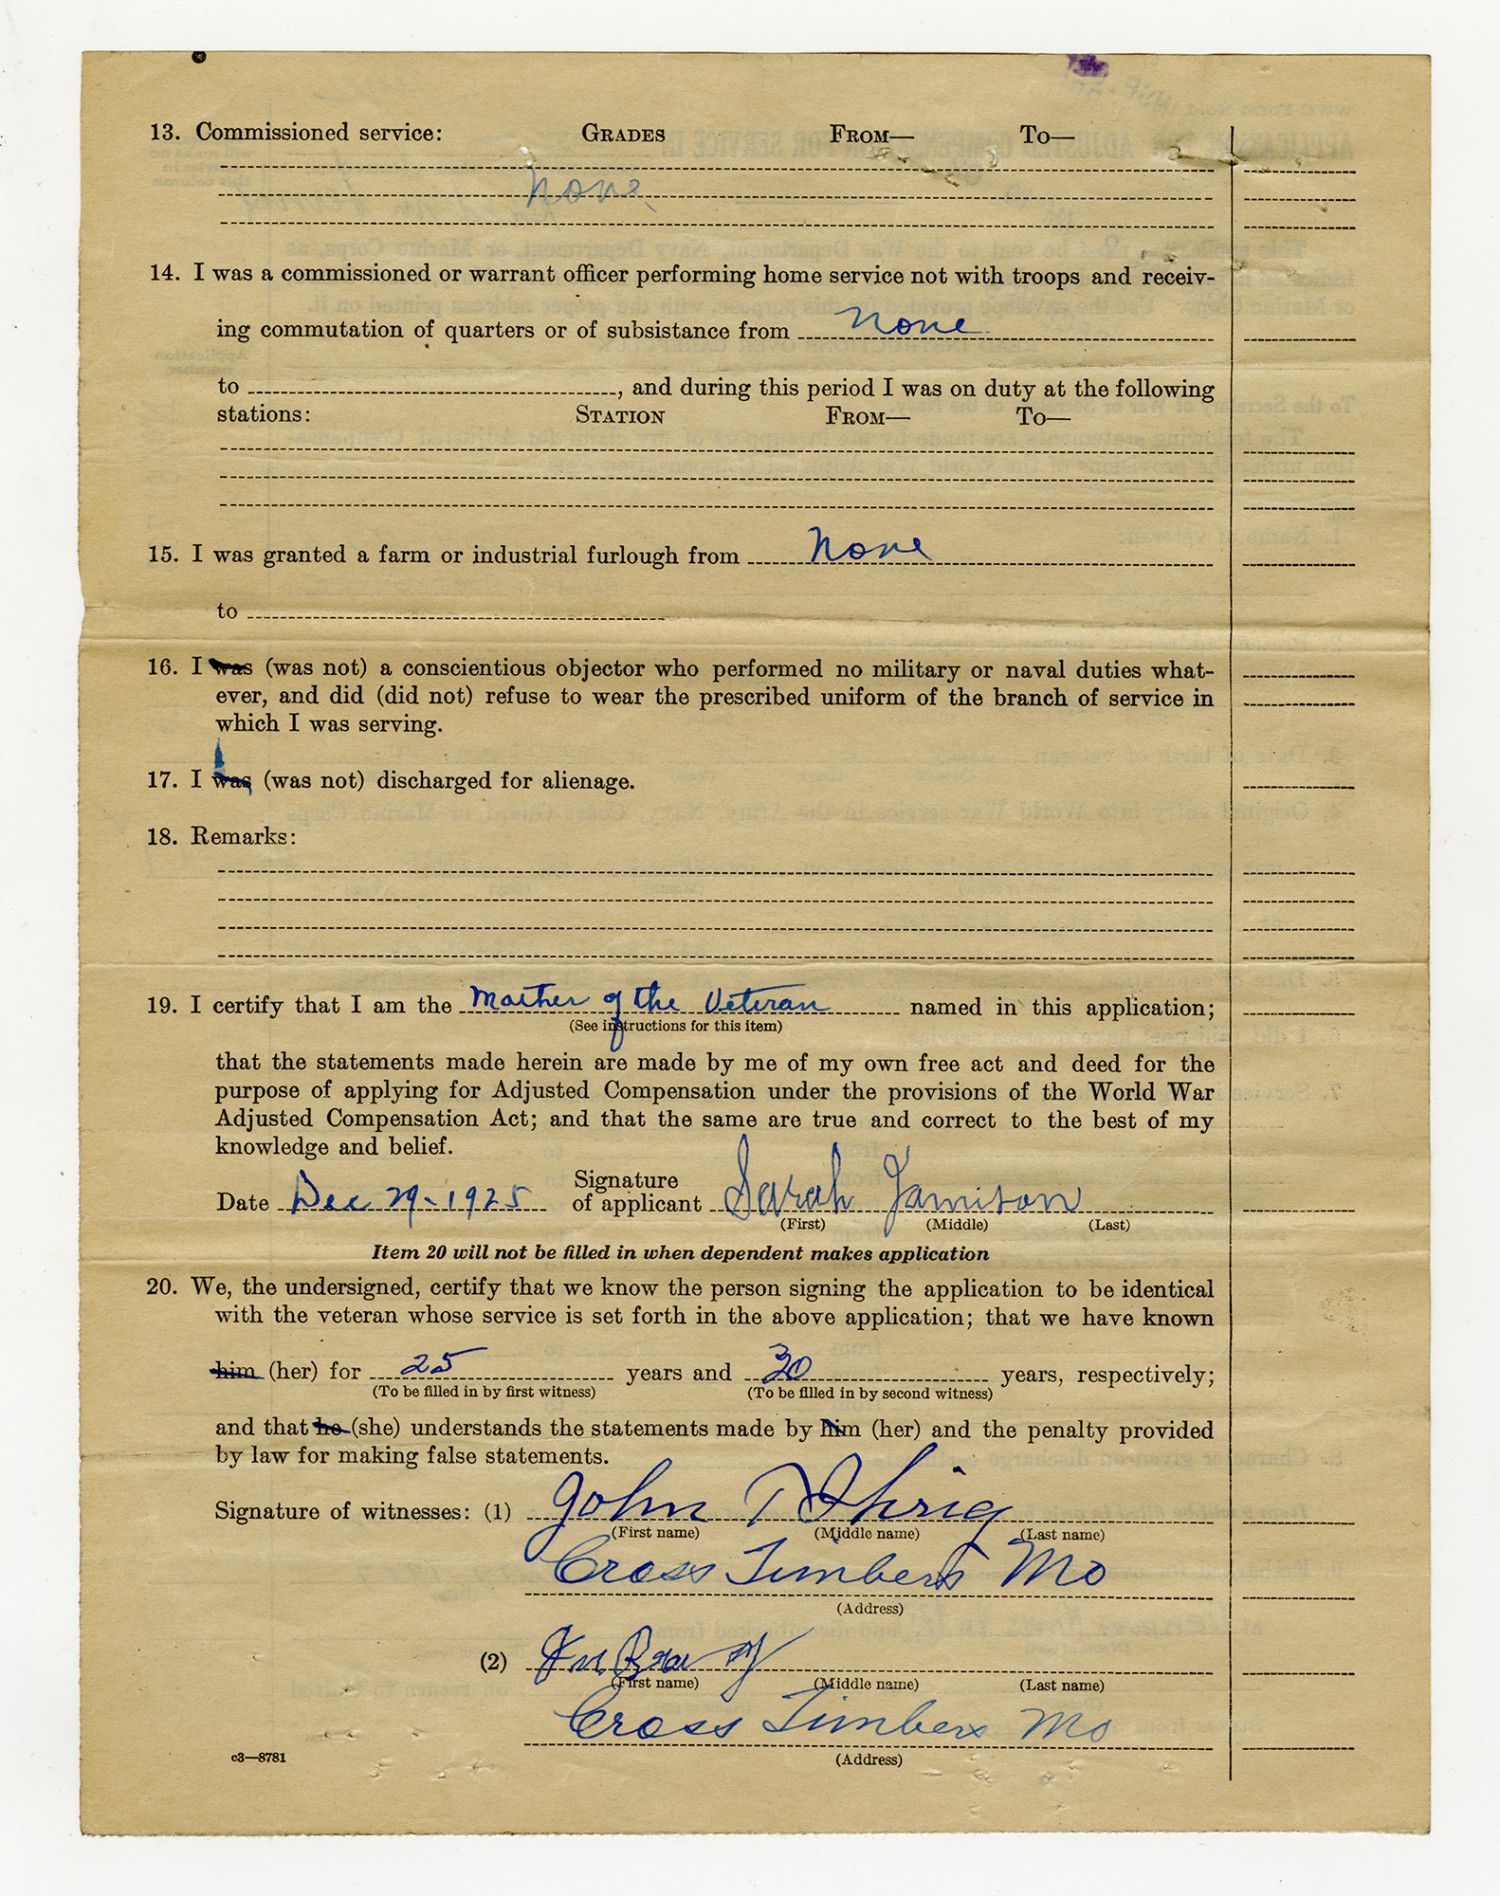 13. Commissioned service: GRADES FROM— TO—
None
14. I was a commissioned or warrant officer performing home service not with troops and receiv-
ing commutation of quarters or of subsistance from None
to , and during this period I was on duty at the following
stations: STATION FROM— TO—
15. I was granted a farm or industrial furlough from None
to
16. I was (was not) a conscientious objector who performed no military or naval duties what-
ever, and did (did not) refuse to wear the prescribed uniform of the branch of service in
which I was serving.
17. I was (was not) discharged for alienage.
18. Remarks:
19. I certify that I am the Mother of the Veteran named in this application;
(See instructions for this item)
that the statements made herein are made by me of my own free act and deed for the
purpose of applying for Adjusted Compensation under the provisions of the World War
Adjusted Compensation Act; and that the same are true and correct to the best of my
knowledge and belief.
Date Dec 29-1925 Signature of applicant Sarah Jamison
(First) (Middle) (Last)
Item 20 will not be filled in when dependent makes application
20. We, the undersigned, certify that we know the person signing the application to be identical
with the veteran whose service is set forth in the above application; that we have known
him (her) for 25 years and 30 years, respectively;
(To be filled in by first witness) (To be filled in by second witness)
and that he (she) understands the statements made by him (her) and the penalty provided
by law for making false statements.
Signature of witnesses: (1) John T Ihrig
(First name) (Middle name) (Last name)
Cross Timbers Mo
(Address)
(2)
(First name) (Middle name) (Last name)
Cross Timbers Mo
(Address)
c3—8781